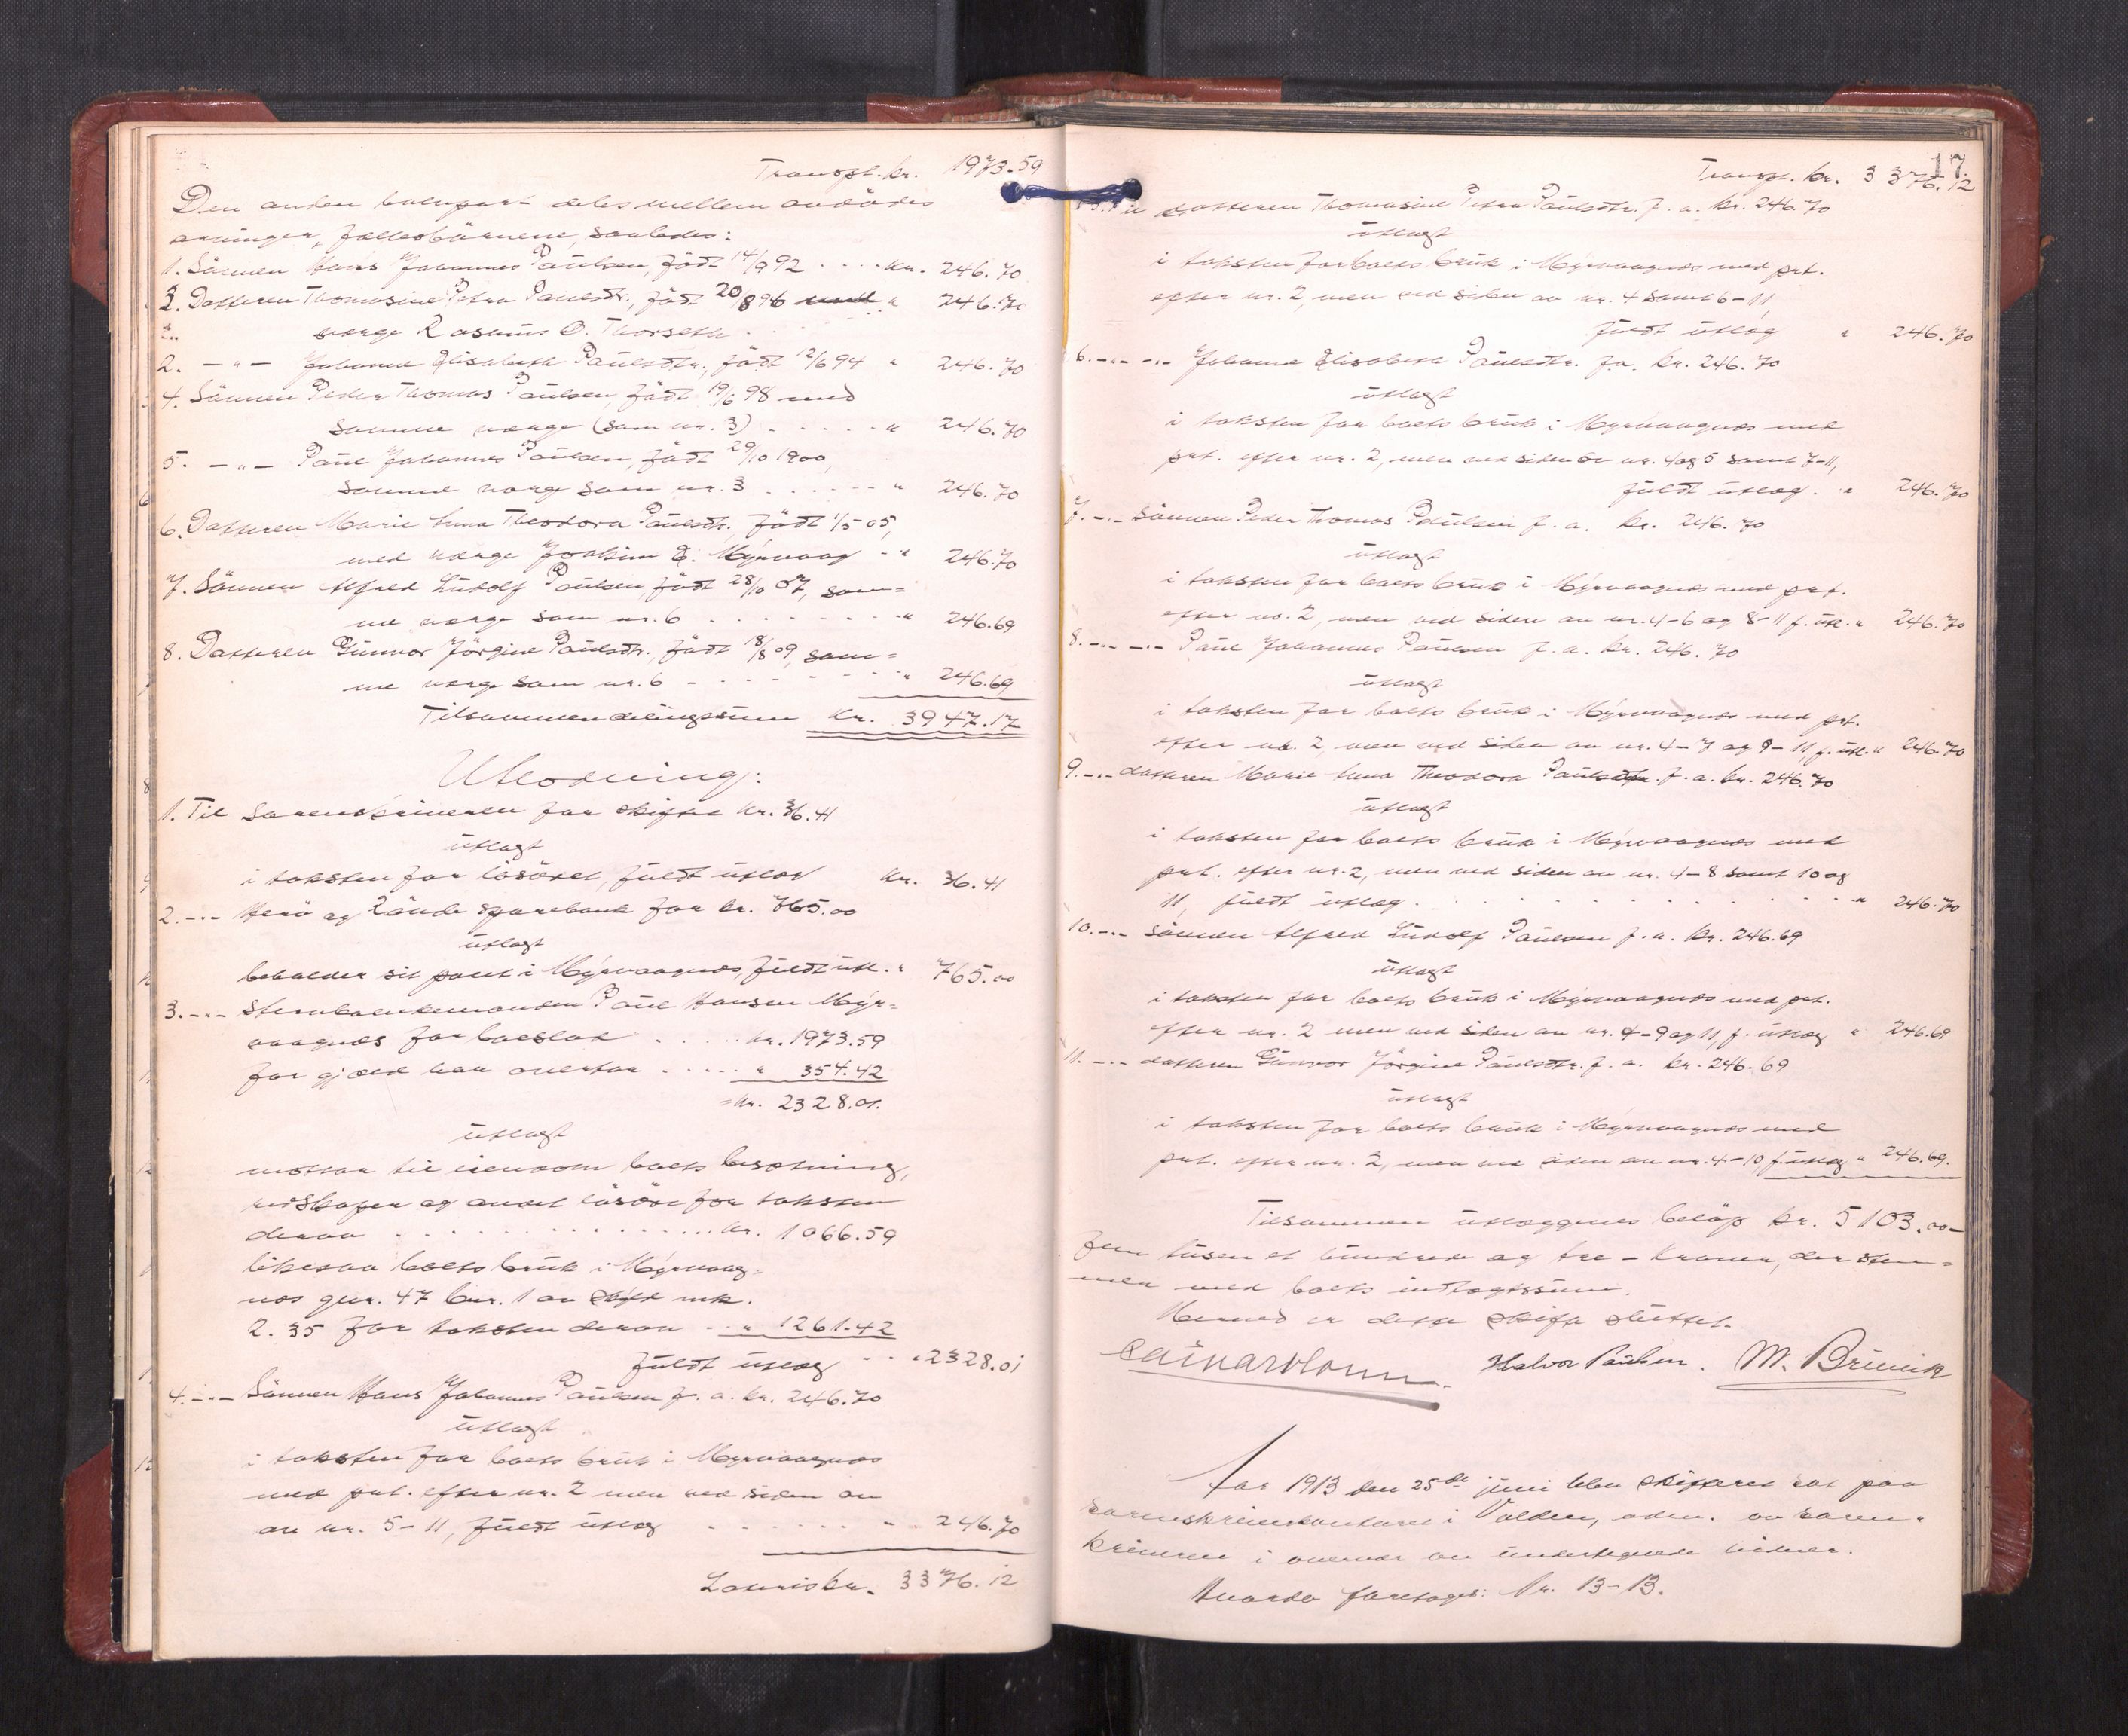 Transpt. kr. 1973.59
Den anden boespart deles mellem avdödes
arvinger, fællesbörnene, saaledes:
1. Sönnen Hans Johannes Paulsen, född 14/9 92 . . . . kr. 246.70
3. Datteren Thomasine Petra Paulsdtr., född 20/8 96 " 246.70
verge Rasmus O. Thorseth
2. - " - Johanne Elisabeth Paulsdtr., född 12/6 94 " 246.70
4. Sönnen Peder Thomas Paulsen, född 19/6 98 med
samme verge (som nr. 3) . . . . . " 246.70
5. - " - Paul Johannes Paulsen, född 29/10 1900,
samme verge som nr. 3 . . . . . . " 246.70
6. Datteren Marie Anna Theodora Paulsdtr. född 1/5 05,
med verge Joakim E. Myrvaag - " 246.70
7. Sönnen Alfred Ludolf Paulsen, född 28/10 07, sam=
me verge som nr. 6 . . . . . . . . " 246.69
8. Datteren Gunvor Jörgine Paulsdtr., född 18/8 09, sam=
me verge som nr. 6 - - - - - - - " 246.69
Tilsammen delingssum kr. 3947.17
Utlodning:
1. Til sorenskriveren for skifte kr. 36.41
utlagt
i taksten for lösöret, fuldt utlæg kr. 36.41
2. -"- Herö og Rövde sparebank for kr. 765.00
utlagt
beholder sit pant i Myrvaagnes, fuldt utl. " 765.00
3. -"- Stervboenkemanden Paul Hansen Myr=
vaagnes for boeslod . . . . . kr. 1973.59
for gjæld han overtar . . . . . " 354.42
= kr. 2328.01.
utlagt
mottar til eiendom boets besætning,
redskaper og andet lösöre for taksten
derav . . . . . . . . . . . . . . kr. 1066.59
likesaa boets bruk i Myrvaag=
nes gnr. 47 bnr. 1 av skyld mk.
2.35 for taksten derav - - " 1261.42
fuldt utlæg - - " 2328.01
4. -"- Sönnen Hans Johannes Paulsen f. a. kr. 246.70
utlagt
i taksten for boets bruk i Myrvaagnes
med prt. efter nr. 2 men ved siden av
av nr. 5-11, fuldt utlæg . . . . . . " 246.70
Lateris kr. 3376.12
17.
Transpt. kr. 3376.12
5. Til datteren Thomasine Petra Paulsdtr. f. a. kr. 246.70
utlagt
i taksten for boets bruk i Myrvaagnes med prt.
efter nr. 2, men ved siden av nr. 4 samt 6-11,
fuldt utlæg " 246.70
6. -"- -"- Johanne Elisabeth Paulsdtr. f. a. kr. 246.70
utlagt
i taksten for boets bruk i Myrvaagnes med
prt. efter nr. 2, men ved siden av nr. 4 og 5 samt 7-11,
fuldt utlæg. " 246.70
7. -"- Sönnen Peder Thomas Paulsen f. a. kr. 246.70
utlagt
i taksten for boets bruk i Myrvaagnes med prt.
efter no. 2, men ved siden av nr. 4-6 og 8-11 f. utl. " 246.70
8. -"- -"- Paul Johannes Paulsen f. a. kr. 246.70
utlagt
i taksten for boets bruk i Myrvaagnes med prt.
efter nr. 2, men ved siden av nr. 4-7 og 9-11, f. utl. " 246.70
9. -"- datteren Marie Anna Theodora Paulsdtr. f. a. kr. 246.70
utlagt
i taksten for boets bruk i Myrvaagnes med
prt. efter nr. 2, men ved siden av nr. 4-8 samt 10 og
11, fuldt utlæg . . . . . . . . . . . . " 246.70
10. -"- Sönnen Alfred Ludolf Paulsen f. a. kr. 246.69
utlagt
i taksten for boets bruk i Myrvaagnes med prt.
efter nr. 2 men ved siden av nr. 4-9 og 11, f. utlæg " 246.69
11. -"- datteren Gunvor Jörgine Paulsdtr. f. a. kr. 246.69
utlagt
i taksten for boets bruk i Myrvaagnes med
prt. efter nr. 2, men ved siden av nr. 4-10, f. utlæg " 246.69.
Tilsammen utlæggenes belöp kr. 5103.00 -
fem tusen et hundrede og tre - kroner, der stem=
mer med boets indtægtssum.
Hermed er dette skifte sluttet.
Halvor Paulsen. M. Brunik
Aar 1913 den 25de juni blev skifteret sat paa
sorenskriverkontoret i Volden, adm. av soren=
kriveren i overvær av undertegnede vidner.
Hvorda foretoges: Nr. 13-13.